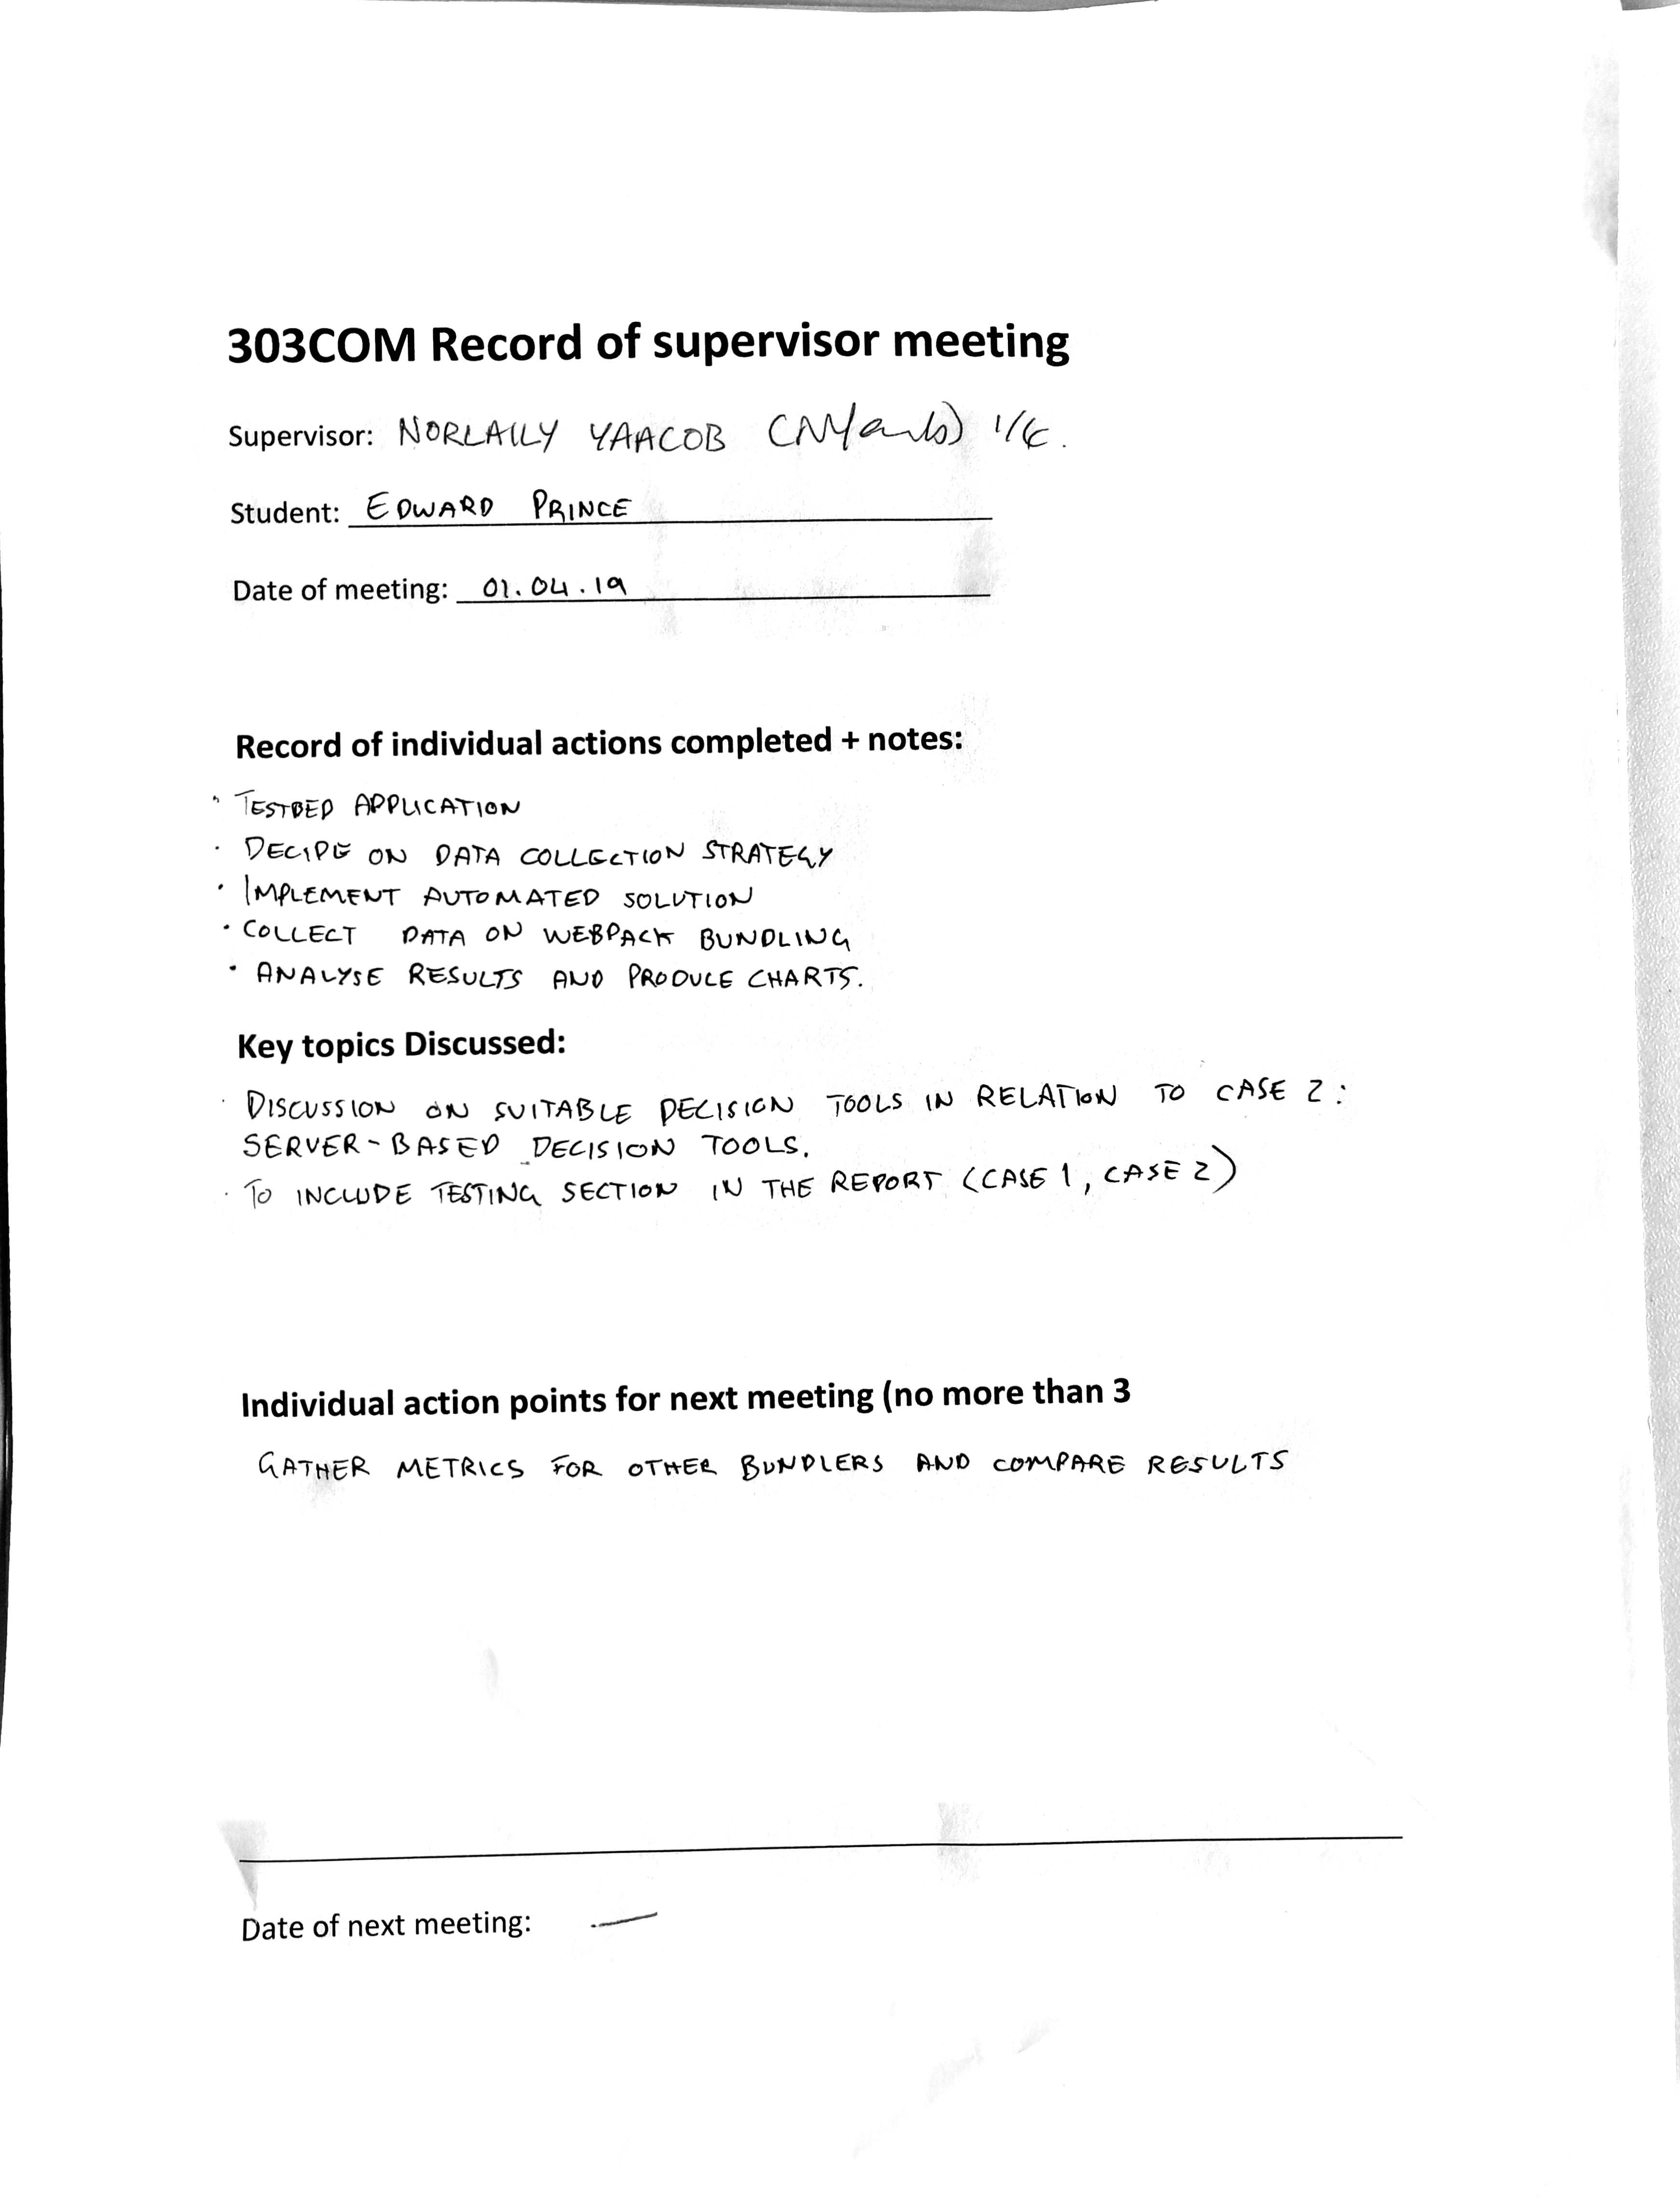 303COM Record of supervisor meeting
Supervisor: NORLAILY YAACOB
Student: EDWARD PRINCE
Date of meeting: 01.04.19
Record of individual actions completed + notes:
· TESTBED APPLICATION
· DECIDE ON DATA COLLECTION STRATEGY
· IMPLEMENT AUTOMATED SOLUTION
· COLLECT DATA ON WEBPACK BUNDLING
· ANALYSE RESULTS AND PRODUCE CHARTS.
Key topics Discussed:
· DISCUSSION ON SUITABLE DECISION TOOLS IN RELATION TO CASE 2:
SERVER-BASED DECISION TOOLS.
· TO INCLUDE TESTING SECTION IN THE REPORT (CASE 1, CASE 2)
Individual action points for next meeting (no more than 3
GATHER METRICS FOR OTHER BUNDLERS AND COMPARE RESULTS
Date of next meeting: —